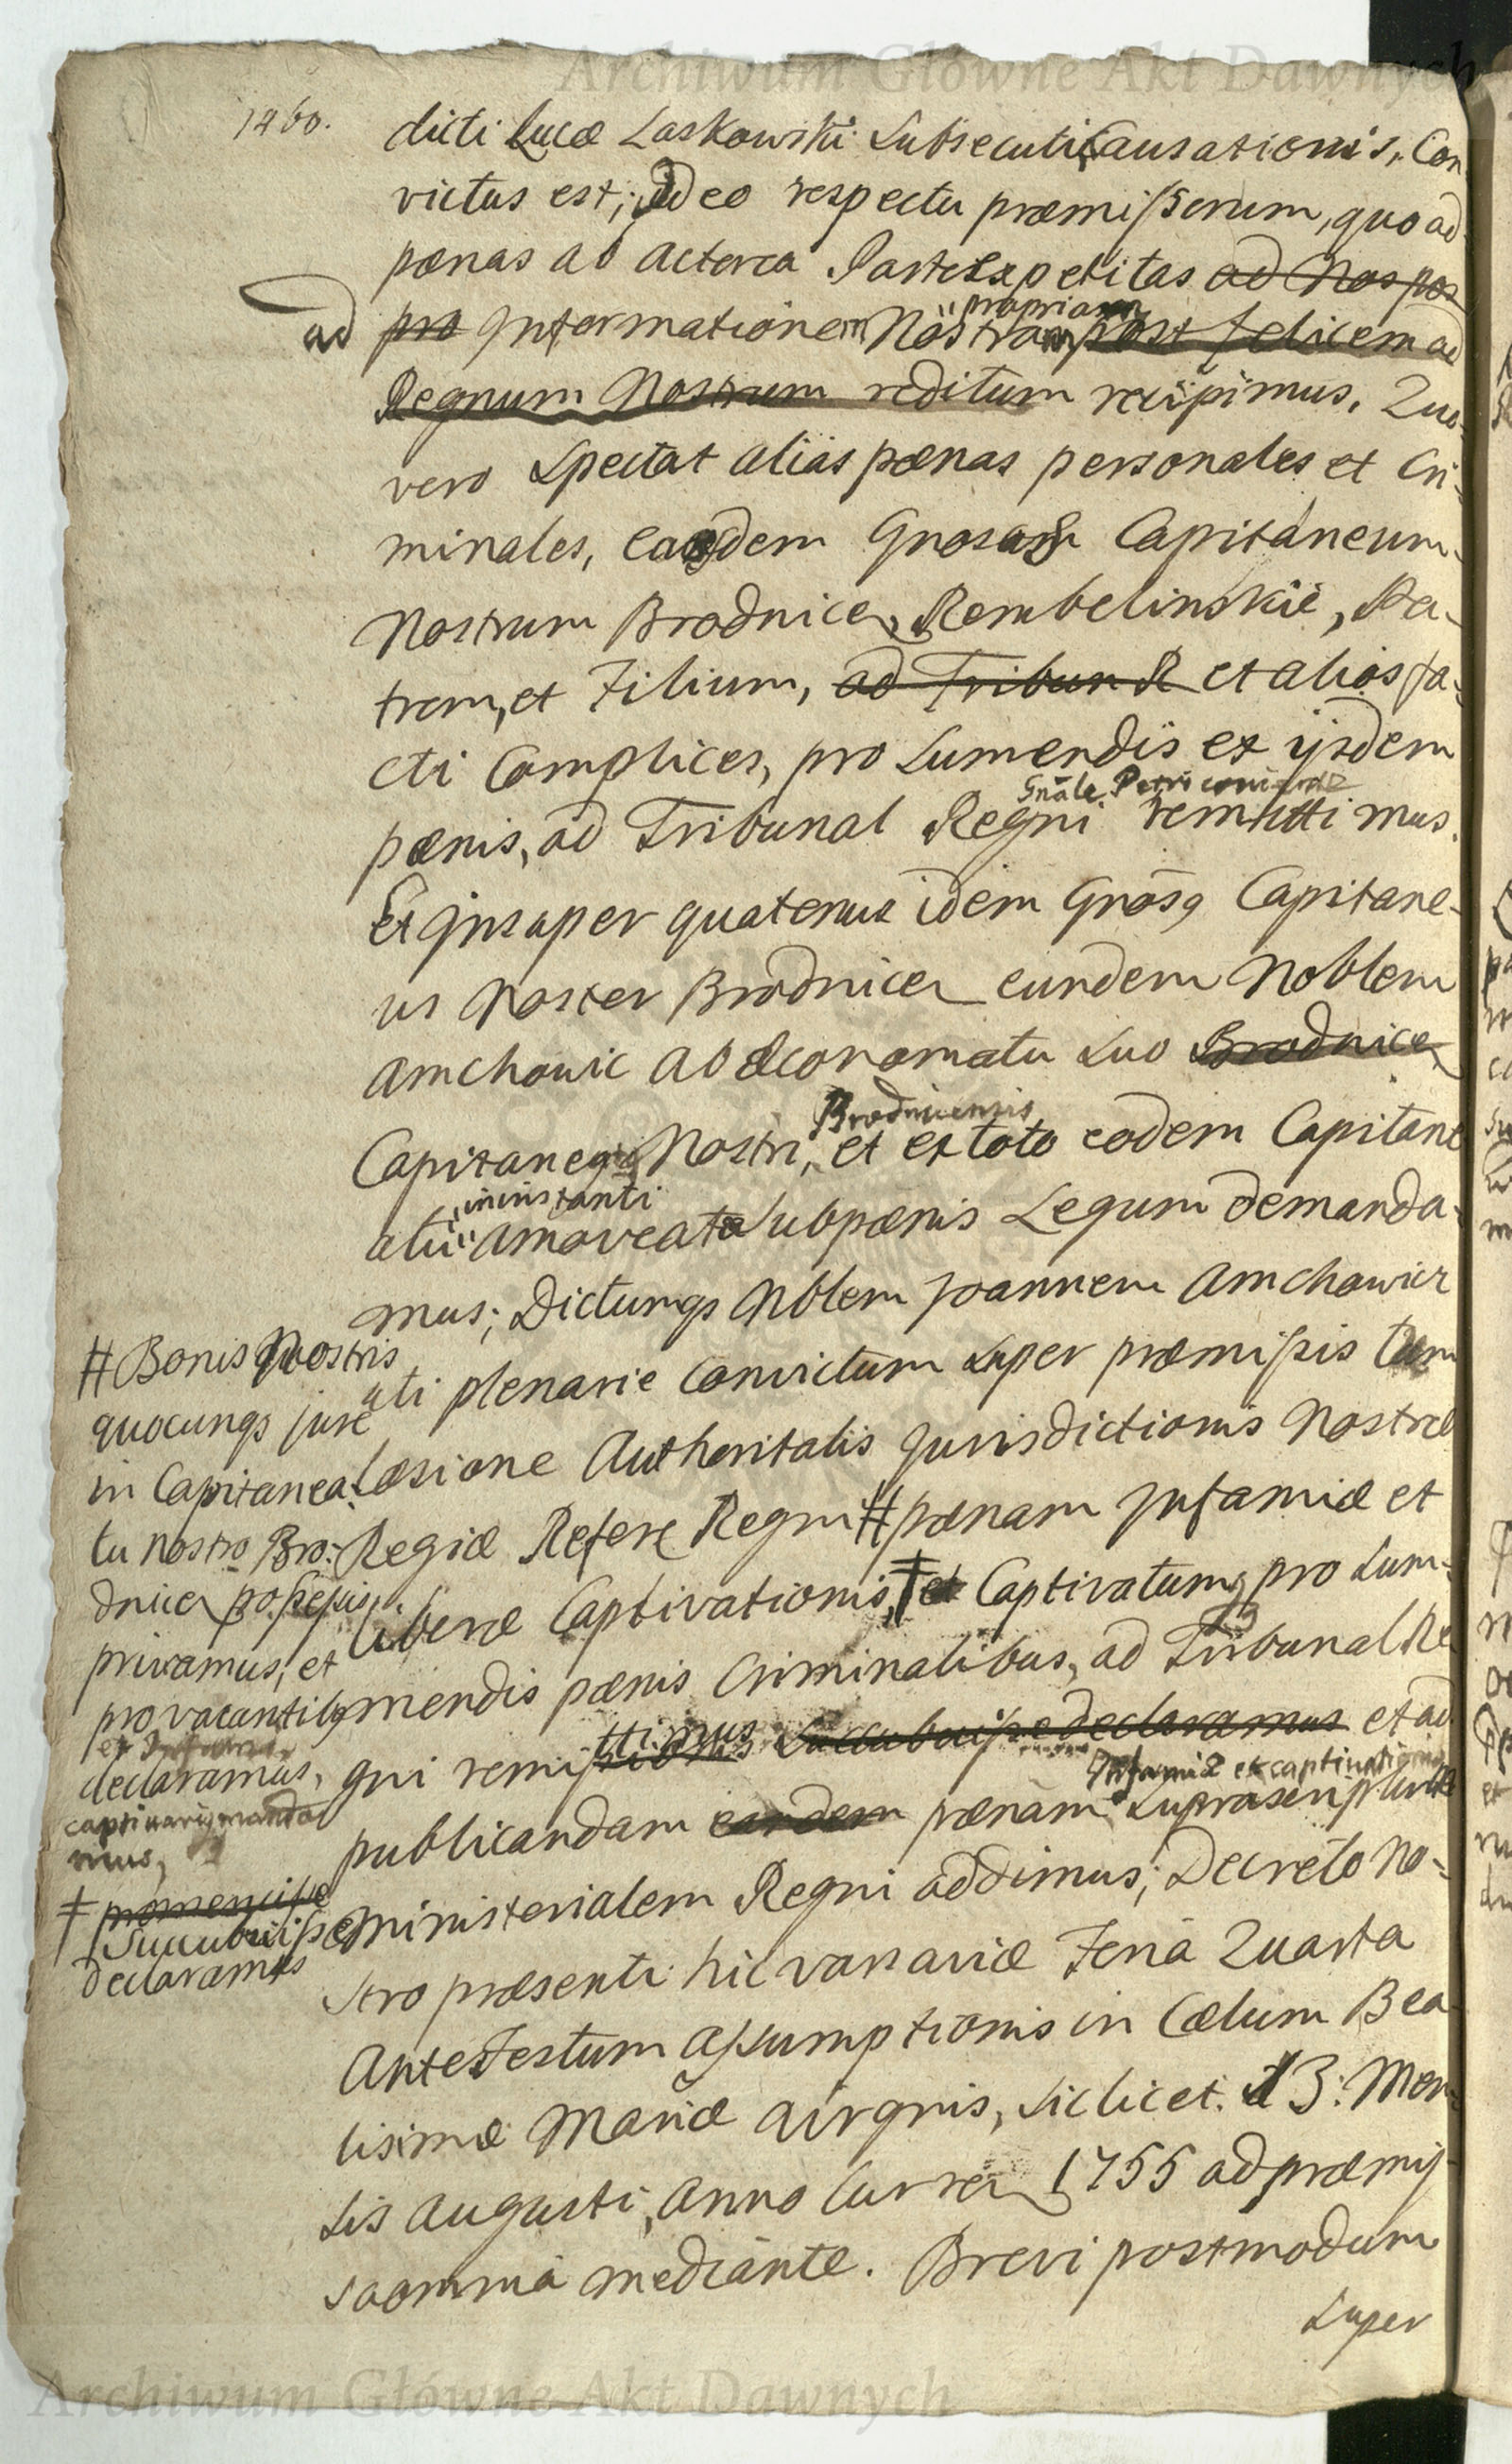 Archiwum Główne Akt Dawnych
1460.
dicti Lucæ Laskowski Subsecuti, Causationis, Con
victus est; Ideo respectu præmissorum, quo ad
pœnas ab Actorea Parte Expetitas ad Nos pos
ad pro Informationem Nostram "propriam post felicem ad
Regnum Nostrum reditum recipimus. Quo
vero Spectat alias pœnas personales et Cri-
minales, Eosdem Gnosos Capitaneum
Nostrum Brodnicen, Rembelinskie, Pa-
trem, et Filium, ad Tribun R et alios fa-
cti Complices, pro Sumendis ex ijsdem
Gnāle Petricoviense
pœnis, ad Tribunal Regni remittimus.
Et Insuper quatenus idem Gnōsq Capitane-
us Noster Brodnicen eundem Noblem
Amchowic ab Œconomatu Suo Brodnicen
Brodnicensis
Capitaneq Nostri, et ex toto eodem Capitane
in instanti
atu" amoveat Sub pœnis Legum demanda-
mus; Dictumqs Nblem Joannem Amchowicz
uti plenarie Convictum Super præmissis tum
læsione Authoritatis Jurisdictionis Nostræ
Regiæ Refere Regni # pœnam Infamiæ et
liberæ Captivationis, ‡ et Captivatumq pro Sum-
mendis pœnis Criminalibus, ad Tribunal Re
gni remittimus Succubuisse declaramus et ad
Infamiæ et captivationis
publicandam eandem pœnam Suprascriptam
Ministerialem Regni addimus; Decreto No-
stro præsenti hic Varsaviæ Feria Quarta
Ante Festum Assumptionis in Cœlum Bea
tisimæ Mariæ Virginis, Scilicet. d 13: Men
sis Augusti, Anno Curren 1755 ad præmis
sa omnia mediante. Brevi postmodum
Super
# Bonis Nostris
quocunqs jure
in Capitanea:
tu Nostro Bro:
dnicen possessis,
privamus, et
pro vacantibq
et Infamem
declaramus,
captivariq manda
mus,
‡ promeruisse
Succubuisse
declaramus
Archiwum Główne Akt Dawnych